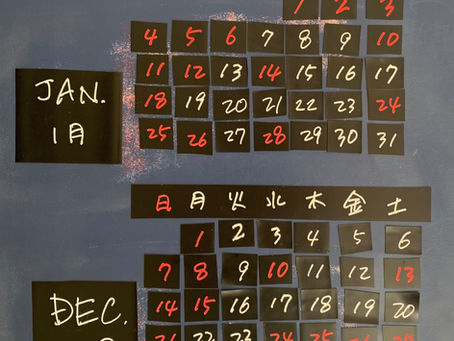 1 2 3
4 5 6 7 8 9 10
JAN.
11 12 13 14 15 16 17
1月
18 19 20 21 22 23 24
25 26 27 28 29 30 31
日 月 火 水 木 金 土
1 2 3 4 5 6
7 8 9 10 11 12 13
DEC.
14 15 16 17 18 19 20
21 22 23 24 25